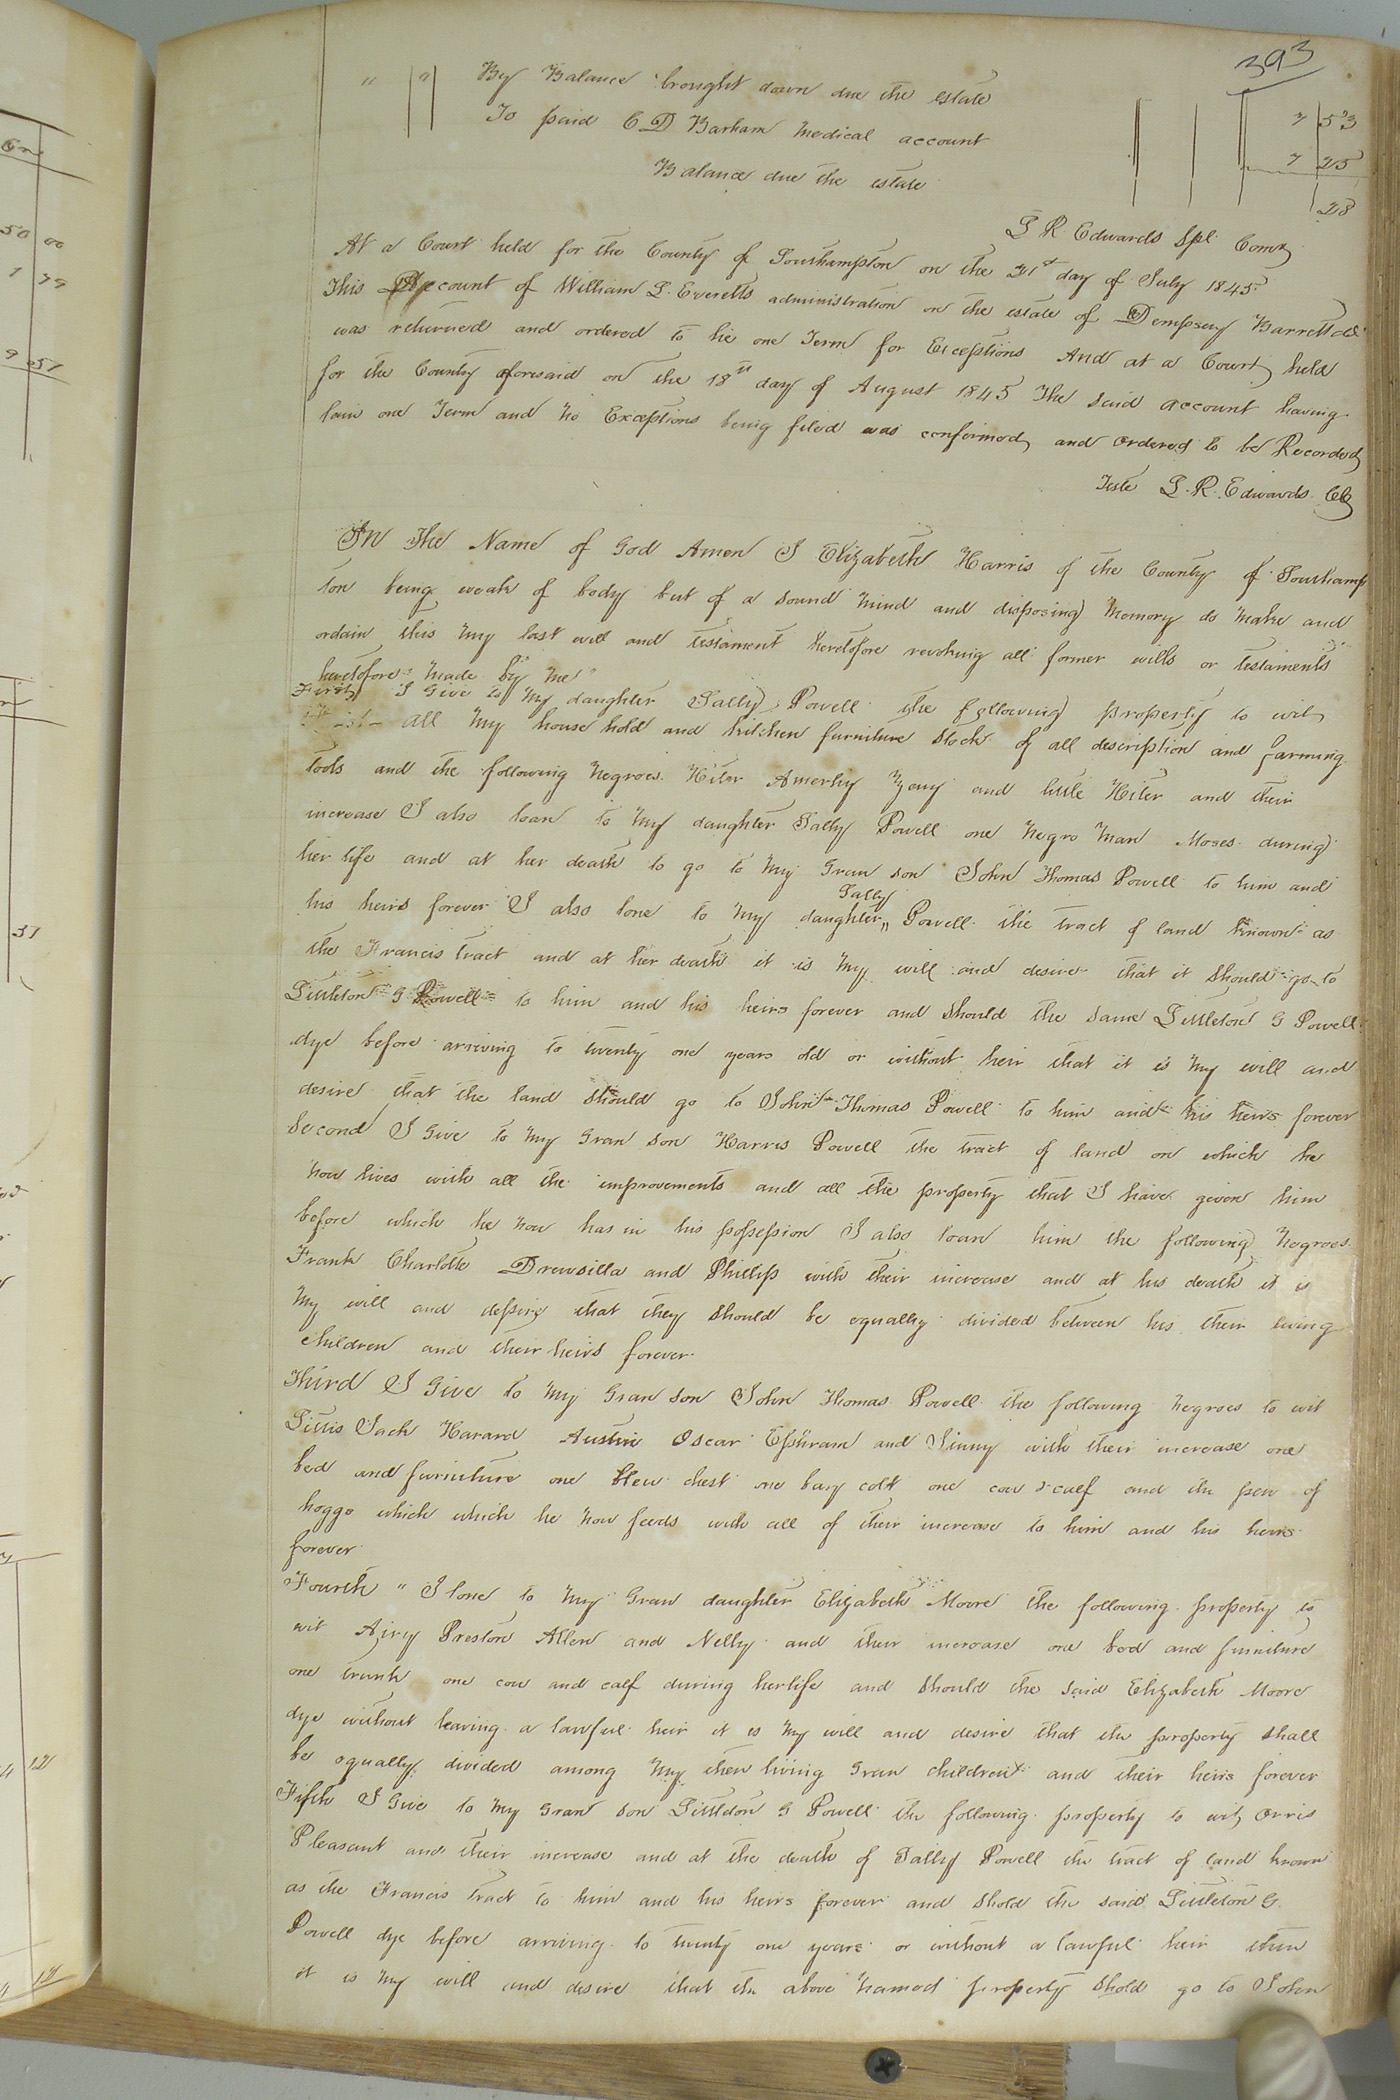 393
" " By Balance brought down due the estate 7 53
To paid C D Barham Medical account 7 25
Balance due the estate 28
L R Edwards Spl. Comr
At a Court held for the County of Southampton on the 21st day of July 1845.
This Account of William L. Everetts administration on the estate of Dempsey Barrett decd
was returned and ordered to lie one Term for Exceptions And at a Court held
for the County aforesaid on the 18th day of August 1845 The said account having
lain one Term and no Exceptions being filed was confirmed, and ordered to be Recorded
Teste L. R. Edwards Clk
In The Name of God Amen I Elizabeth Harris of the County of Southamp
ton being weak of body but of a sound mind and disposing memory do make and
ordain this my last will and testament heretofore revoking all former wills or testaments
heretofore made by me
First I Give to my daughter Sally Powell the following property to wit,
all my house hold and kitchen furniture stock of all description and farming
tools and the following negroes Hiter Amerky Zeny and little Hiter and their
increase I also loan to my daughter Sally Powell one negro man Moses during
her life and at her death to go to my Gran son John Thomas Powell to him and
Sally
his heirs forever I also lone to my daughter Powell the tract of land known as
the Francis tract and at her death it is my will and desire that it should go to
Littleton G Powell to him and his heirs forever and should the same Littleton G Powell
dye before arriving to twenty one years old or without heir that it is my will and
desire that the land should go to John Thomas Powell to him and his heirs forever
Second I Give to my Gran son Harris Powell the tract of land on which he
now lives with all the improvements and all the property that I have given him
before which he now has in his possession I also loan him the following negroes
Frank Charlotte Drewsilla and Phillip with their increase and at his death it is
my will and desire that they should be equally divided between his then living
children and their heirs forever
Third I Give to my Gran son John Thomas Powell the following negroes to wit
Littis Jack Harard Austin Oscar Ephram and Jinny with their increase one
bed and furniture one blew chest one bay colt one cow & calf and the pen of
hoggs which which he now feeds with all of their increase to him and his heirs
forever
Fourth " I lone to my Gran daughter Elizabeth Moore the following property to
wit Airy Preston Allen and Nelly and their increase one bed and furniture
one trunk one cow and calf during her life and should the said Elizabeth Moore
dye without leaving a lawful heir it is my will and desire that the property shall
be equally divided among my then living Gran children and their heirs forever
Fifth I Give to my Gran son Littleton G Powell the following property to wit, Orris
Pleasant and their increase and at the death of Sally Powell the tract of land known
as the Francis tract to him and his heirs forever and shold the said Littleton G.
Powell dye before arriving to twenty one years or without a lawful heir then
it is my will and desire that the above named property shold go to John